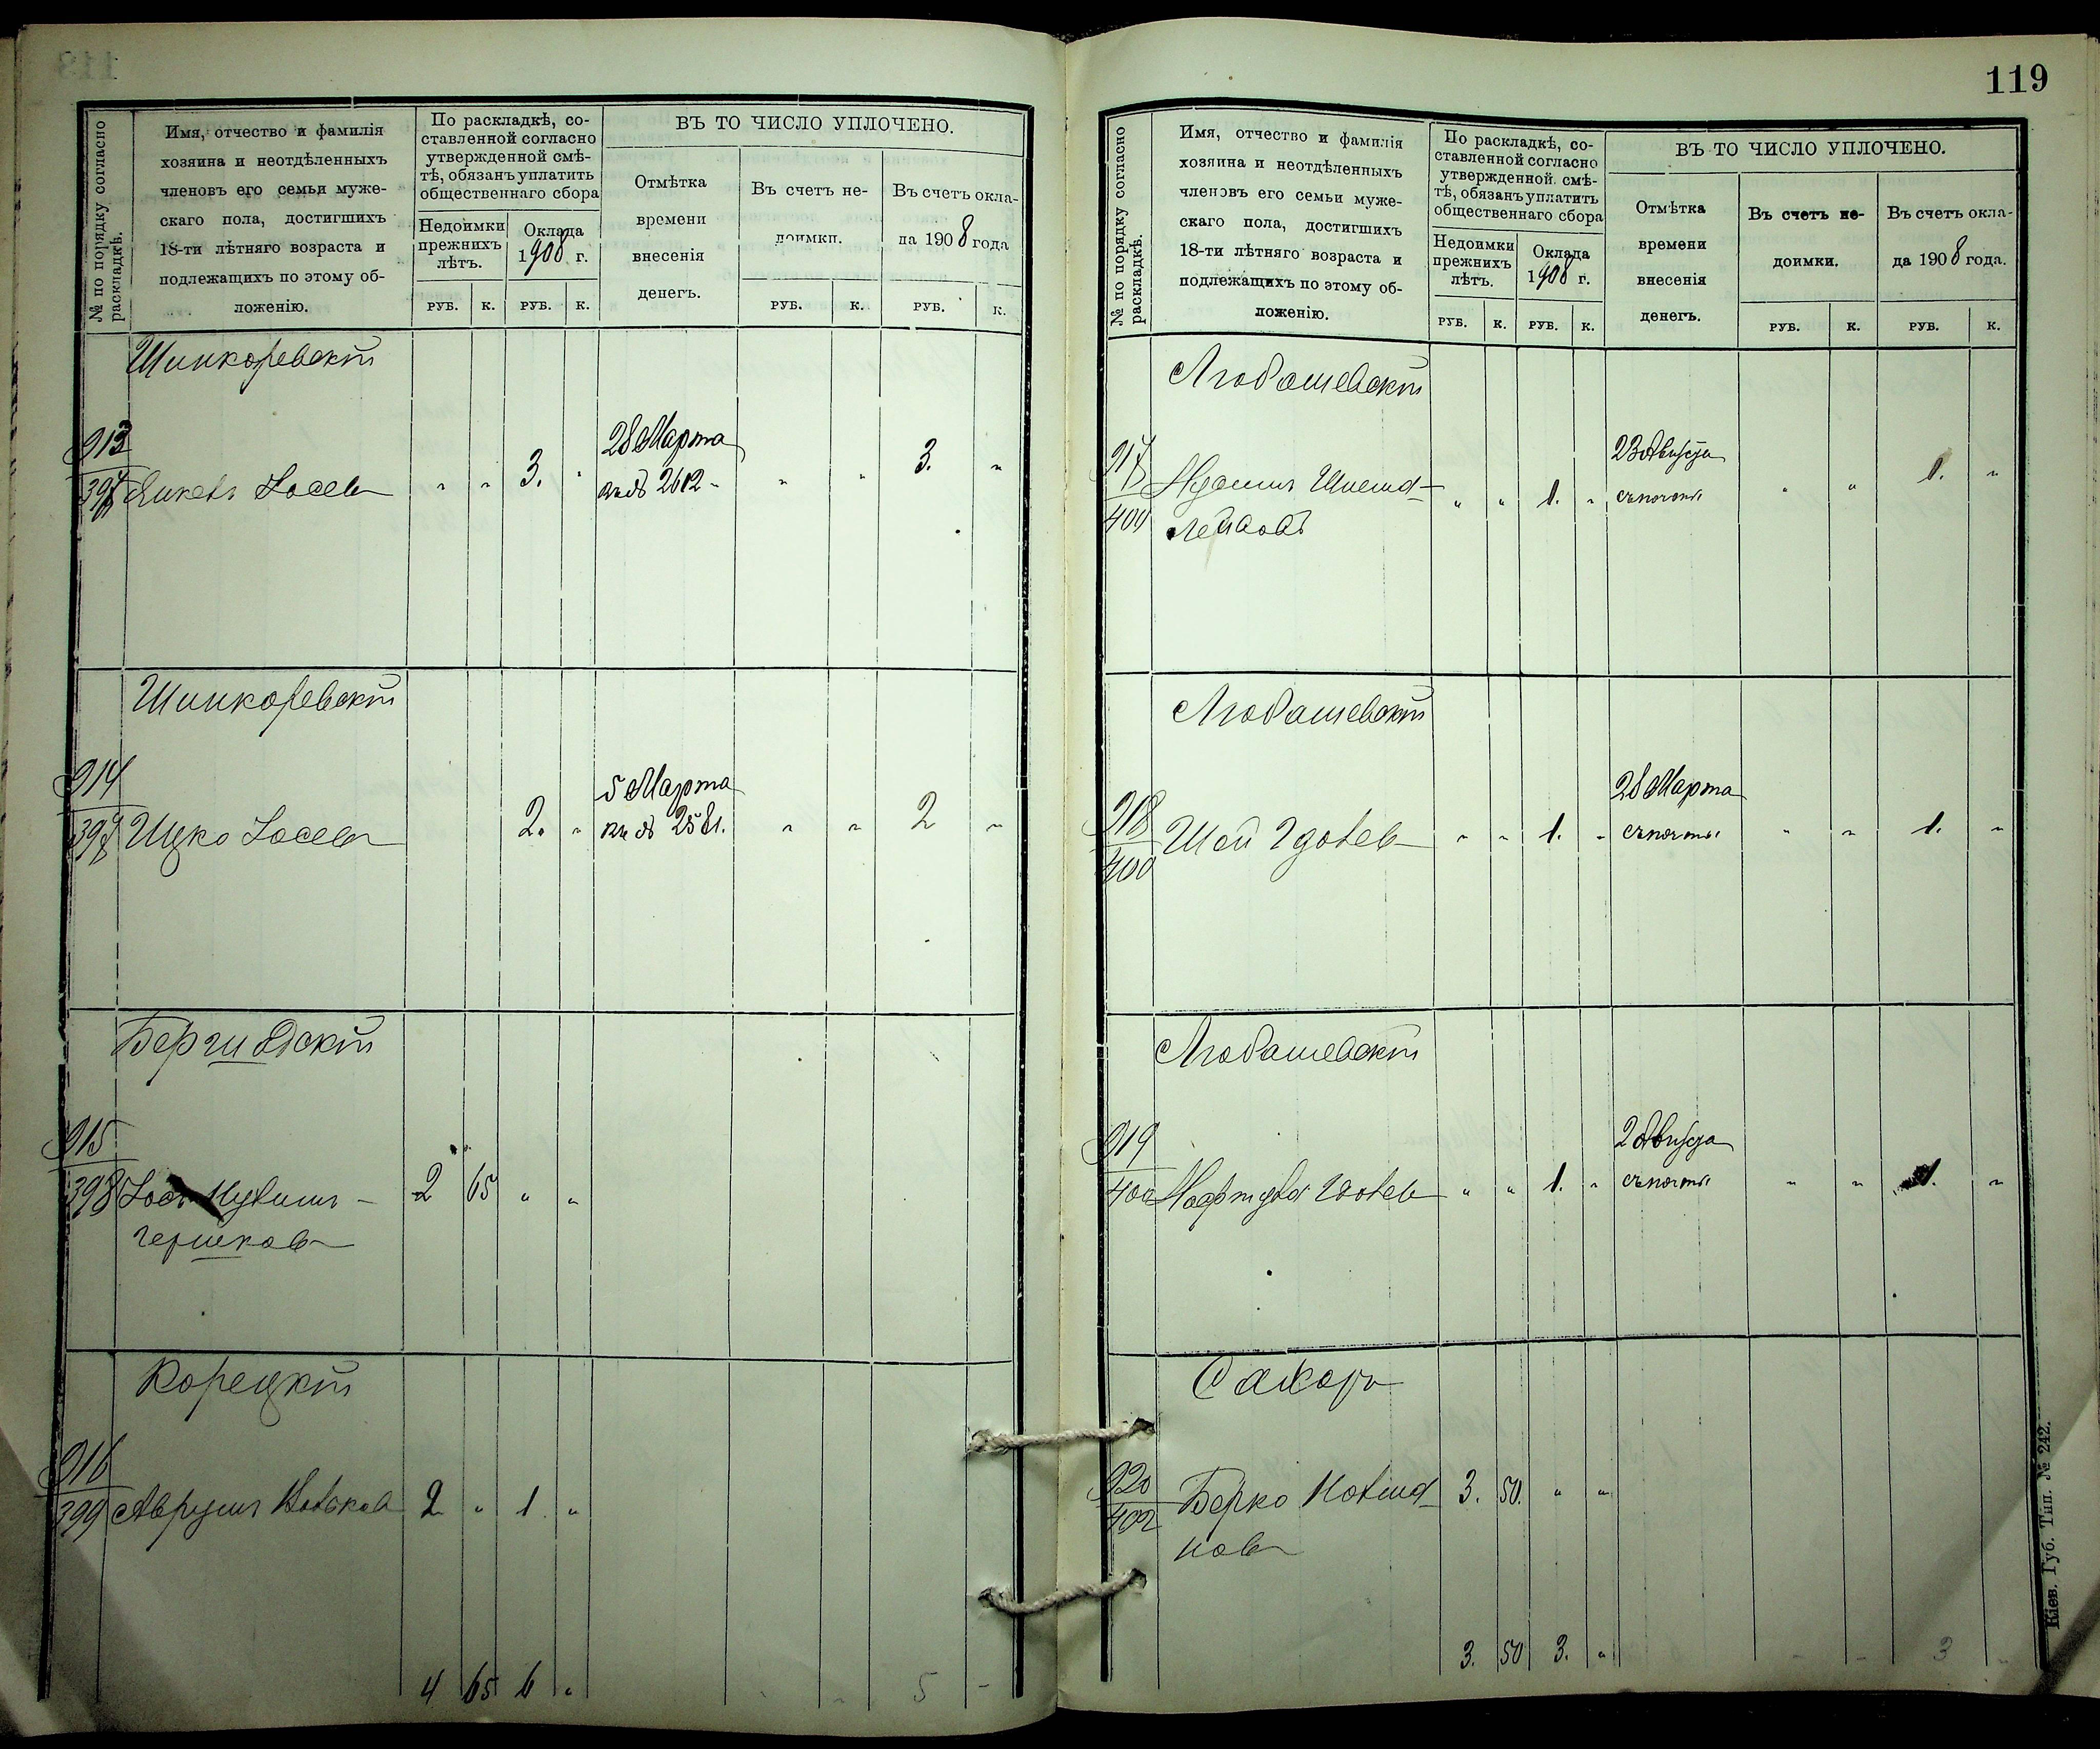 119
№ по порядку согласно раскладкѣ.
Имя, отчество и фамилія
хозяина и неотдѣленныхъ
членовъ его семьи муже-
скаго пола, достигшихъ
18-ти лѣтняго возраста и
подлежащихъ по этому об-
ложенію.
По раскладкѣ, со-
ставленной согласно
утвержденной смѣ-
тѣ, обязанъ уплатить
общественнаго сбора
Недоимки
прежнихъ
лѣтъ.
Оклада
1908 г.
РУБ. К. РУБ. К.
ВЪ ТО ЧИСЛО УПЛОЧЕНО.
Отмѣтка
времени
внесенія
денегъ.
Въ счетъ не-
доимки.
Въ счетъ окла-
да 1908 года
РУБ. К. РУБ. К.
Шинкаревскій
913
397 Янкель Іосев 3. 28 Марта 2612 3.
Шинкаревскій
914
397 Ицко Іосев 2. 5 Марта 2581. 2
915
398 2 65
Гершков
Корецкій
916
399 Аврумъ 2 " 1 "
4 65 6 " 5 -
№ по порядку согласно раскладкѣ.
Имя, отчество и фамилія
хозяина и неотдѣленныхъ
членовъ его семьи муже-
скаго пола, достигшихъ
18-ти лѣтняго возраста и
подлежащихъ по этому об-
ложенію.
По раскладкѣ, со-
ставленной согласно
утвержденной смѣ-
тѣ, обязанъ уплатить
общественнаго сбора
Недоимки
прежнихъ
лѣтъ.
Оклада
1908 г.
РУБ. К. РУБ. К.
ВЪ ТО ЧИСЛО УПЛОЧЕНО.
Отмѣтка
времени
внесенія
денегъ.
Въ счетъ не-
доимки.
Въ счетъ окла-
да 1908 года.
РУБ. К. РУБ. К.
Любашевскій
917
400 " " 1. " 23 Августа съ почты " " 1. "
Лейбовъ
Любашевскій
918
400 Шая " " 1. " 28 Марта съ почты " " 1. "
Любашевскій
919
400 " " 1. " 2 Августа съ почты " " 1. "
Сахаръ
920
402 Берко 3. 50. " "
3. 50 3. " 3
Кіев. Губ. Тип. № 242.